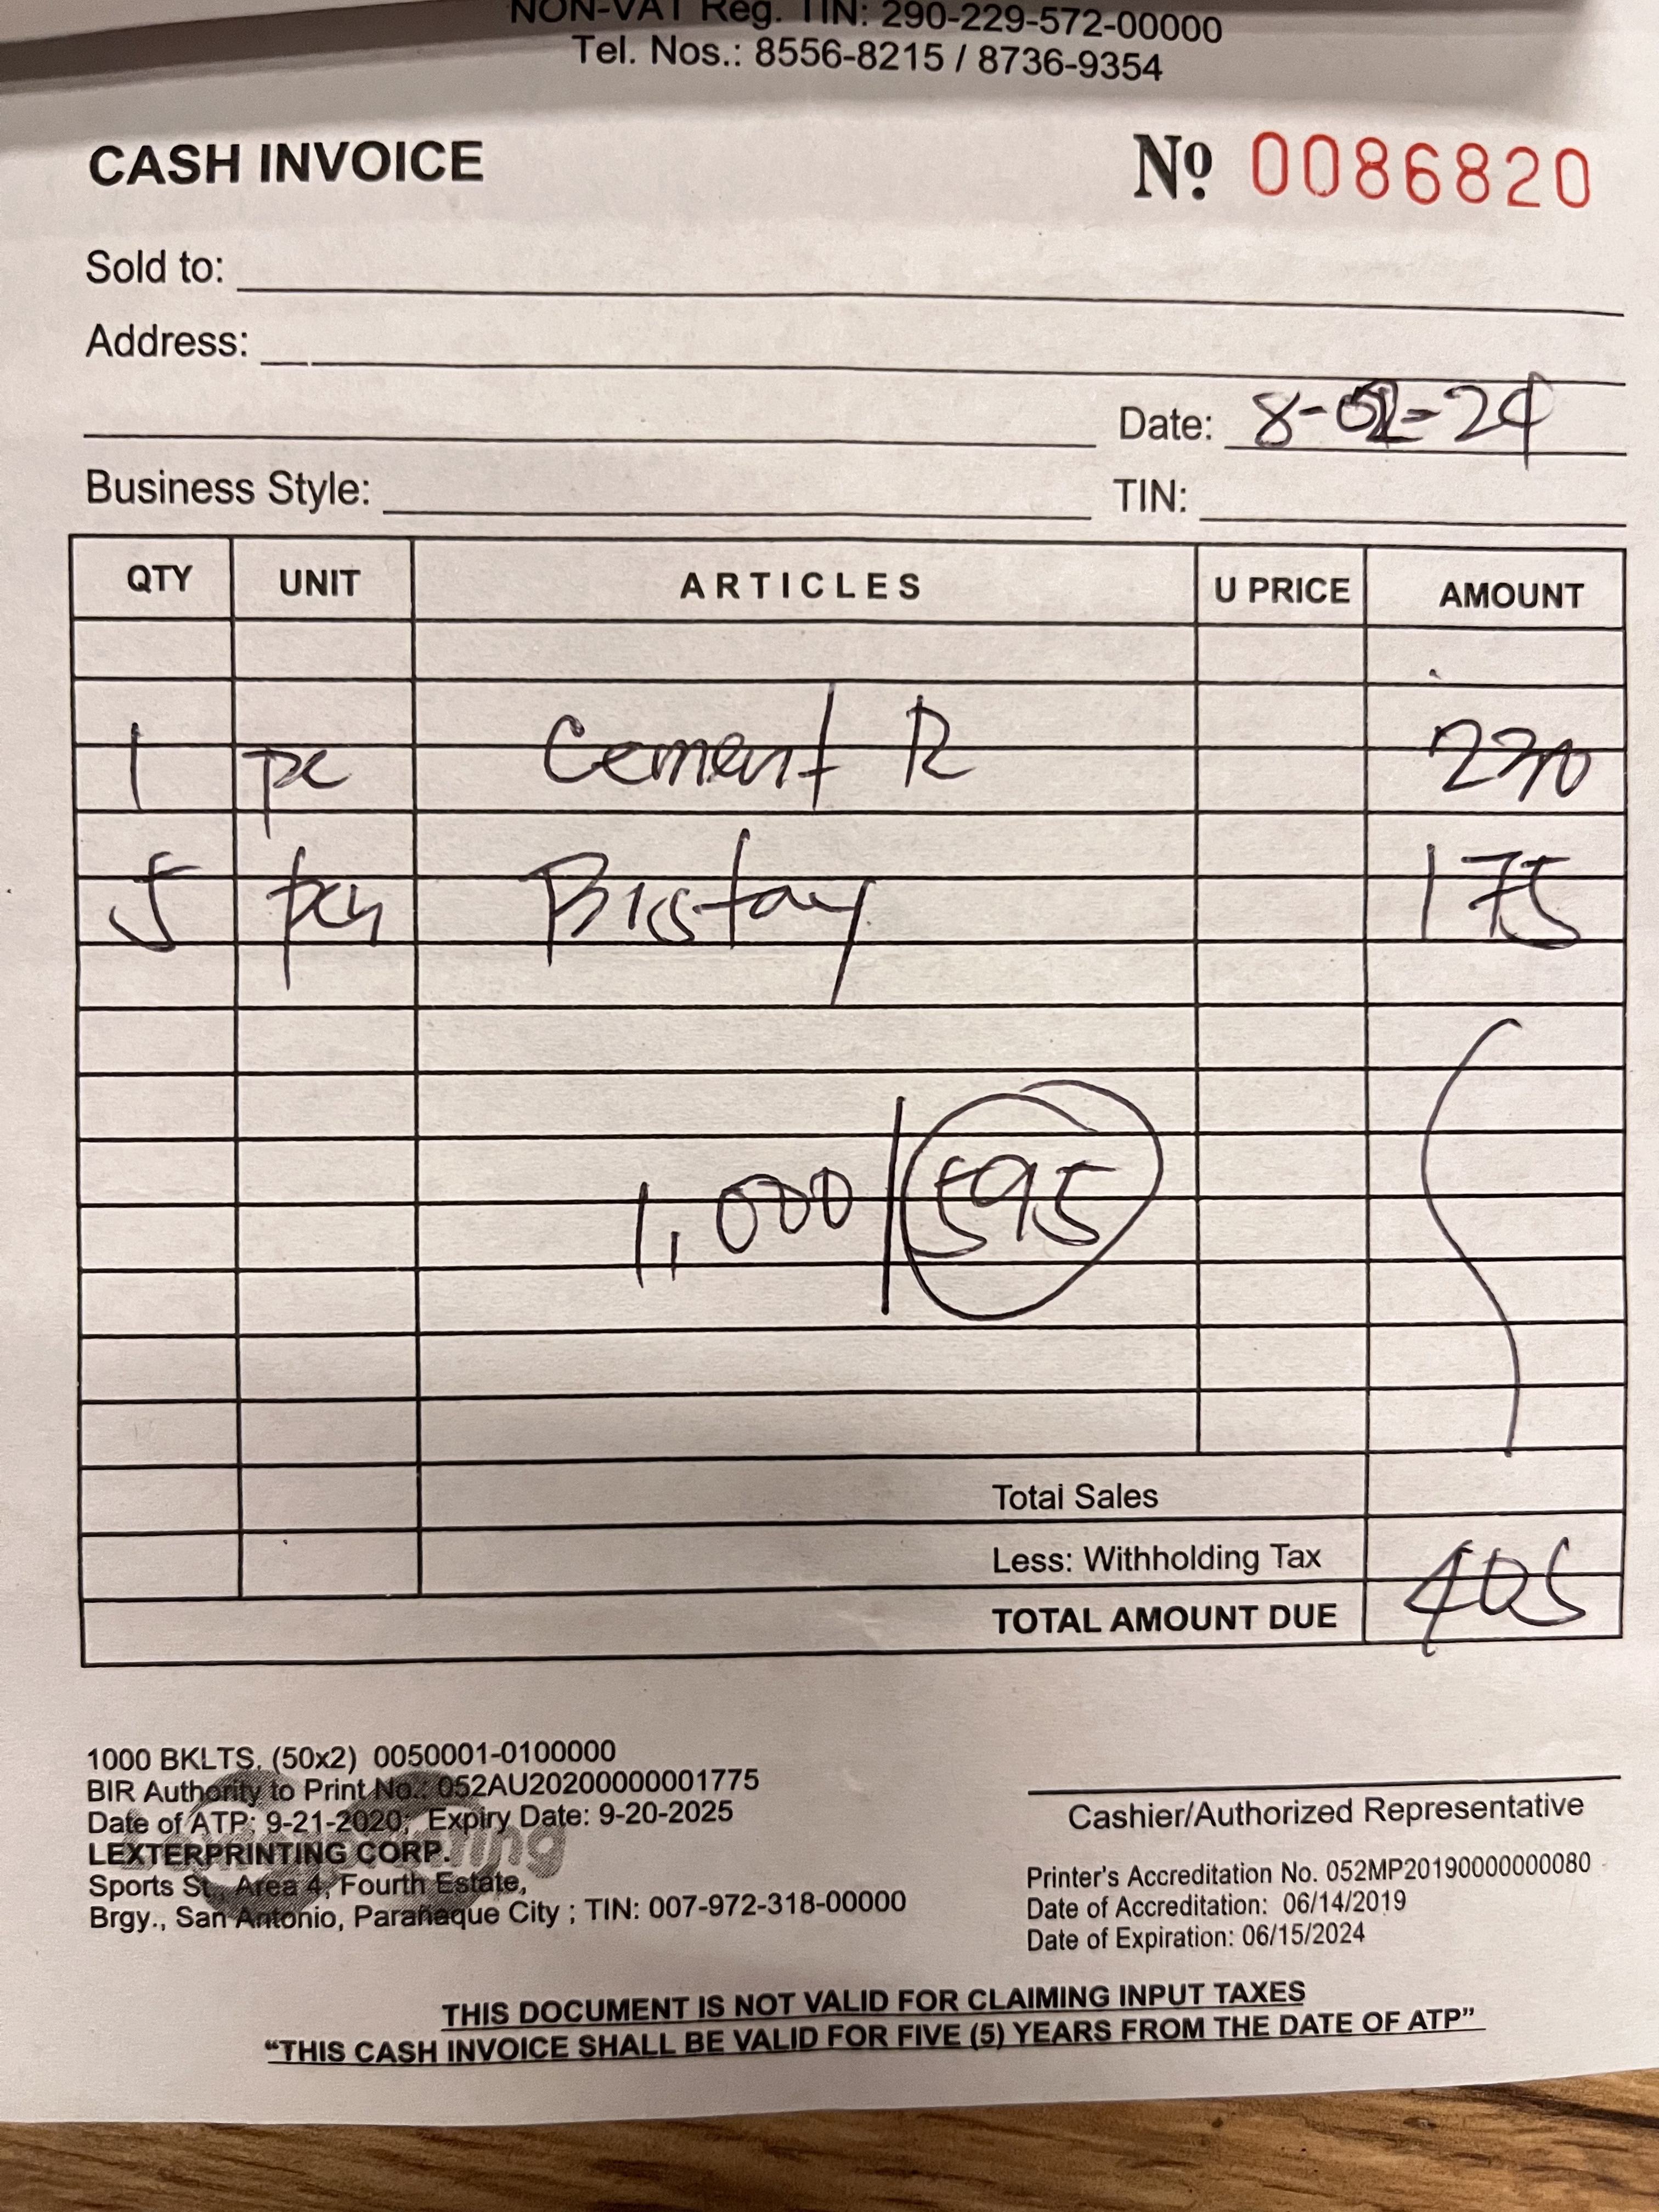 NON-VAT Reg. TIN: 290-229-572-00000
Tel. Nos.: 8556-8215 / 8736-9354
CASH INVOICE Nº 0086820
Sold to:
Address:
Date: 8-02-24
Business Style: TIN:
QTY UNIT ARTICLES U PRICE AMOUNT
1 pc Cement R 230
5 pcs Bistay 175
1,000 / 595
Total Sales
Less: Withholding Tax
TOTAL AMOUNT DUE 405
1000 BKLTS. (50x2) 0050001-0100000
BIR Authority to Print No.: 052AU20200000001775
Date of ATP: 9-21-2020; Expiry Date: 9-20-2025
LEXTERPRINTING CORP.
Sports St., Area 4, Fourth Estate,
Brgy., San Antonio, Parañaque City ; TIN: 007-972-318-00000
Cashier/Authorized Representative
Printer's Accreditation No. 052MP20190000000080
Date of Accreditation: 06/14/2019
Date of Expiration: 06/15/2024
THIS DOCUMENT IS NOT VALID FOR CLAIMING INPUT TAXES
“THIS CASH INVOICE SHALL BE VALID FOR FIVE (5) YEARS FROM THE DATE OF ATP”